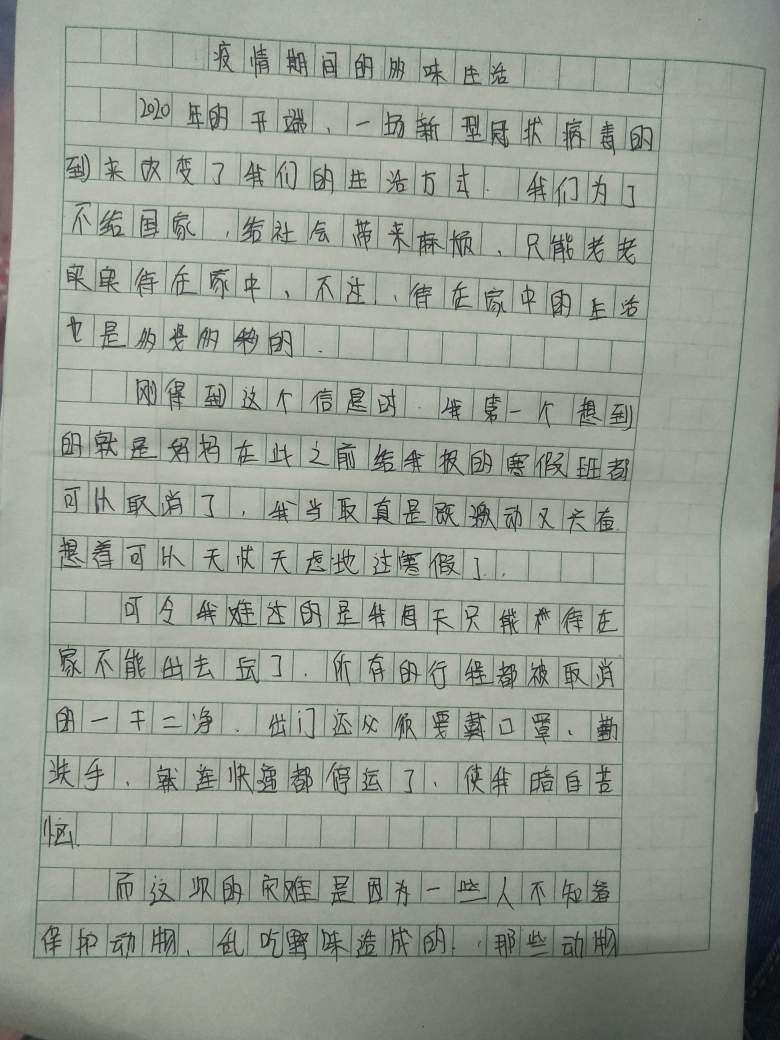 疫情期间的多味生活
2020年的开端、一场新型冠状病毒的
到来改变了我们的生活方式.我们为了
不给国家,给社会带来麻烦、只能老老
实实待在家中、不过、待在家中的生活
也是多姿多彩的.
刚得到这个信息时.我第一个想到
的就是妈妈在此之前给我报的寒假班都
可以取消了,我当取真是既激动又兴奋
想着可以无忧无虑地过寒假了.
可令我难过的是我每天只能待在
家不能出去玩了.所有的行程都被取消
的一干二净.出门还必须要戴口罩、勤
洗手、就连快递都停运了、使我暗自苦
恼.
而这次的灾难是因为一些人不知道
保护动物、乱吃野味造成的.那些动物